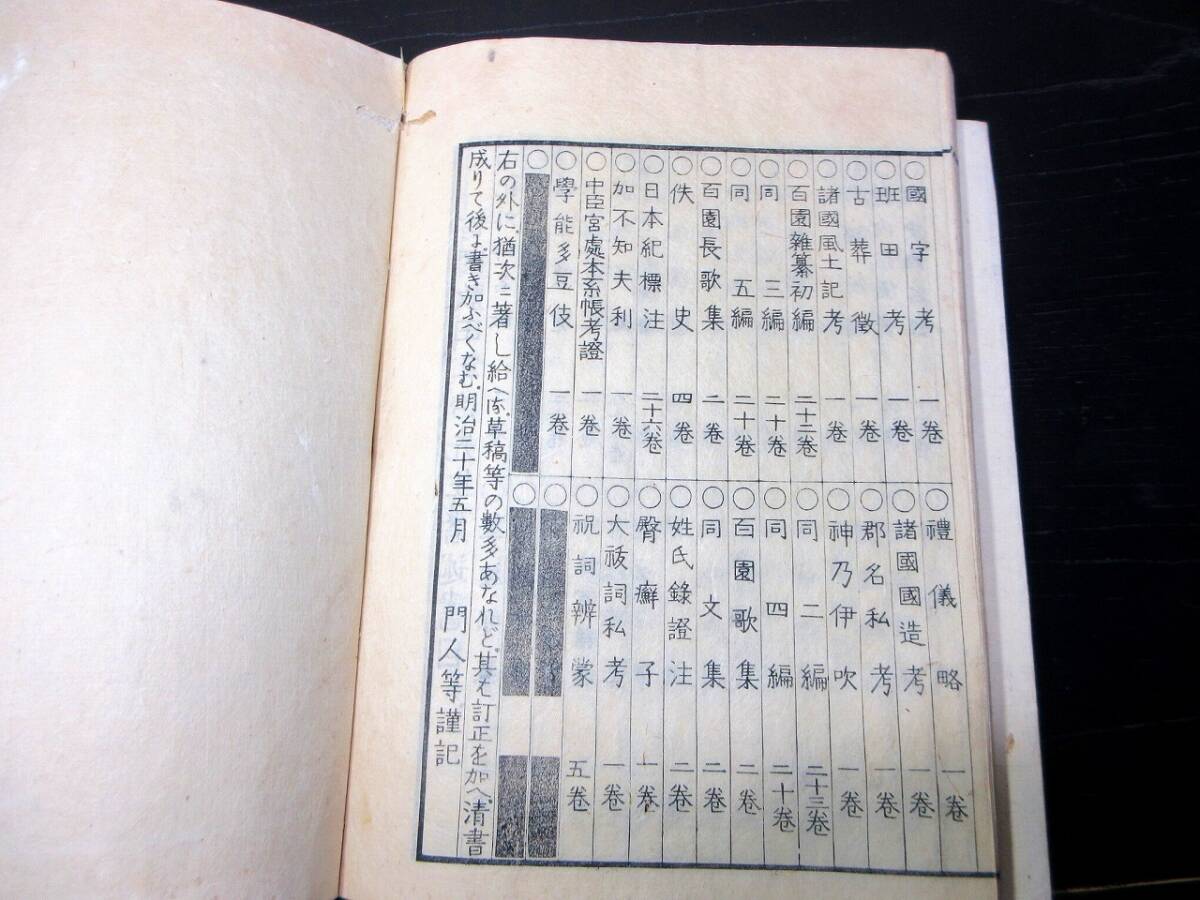 ○國字考 一卷
○班田考 一卷
○古葬徴 一卷
○諸國風土記考 一卷
○百園雜纂初編 二十二卷
○同三編 二十卷
○同五編 二十卷
○百園長歌集 二卷
○佚史 四卷
○日本紀標注 二十六卷
○加不知夫利 一卷
○中臣宮處本系帳考證 一卷
○學能多豆伎 一卷
○
○禮儀略 一卷
○諸國國造考 一卷
○郡名私考 一卷
○神乃伊吹 一卷
○同二編 二十三卷
○同四編 二十卷
○百園歌集 二卷
○同文集 二卷
○姓氏錄證注 二卷
○臀癬子 一卷
○大祓詞私考 一卷
○祝詞辨蒙 五卷
○
○
右の外に猶次々著し給へる草稿等の數多あなれど其は訂正を加へ清書
成りて後に書き加ふべくなむ明治二十年五月 門人等謹記